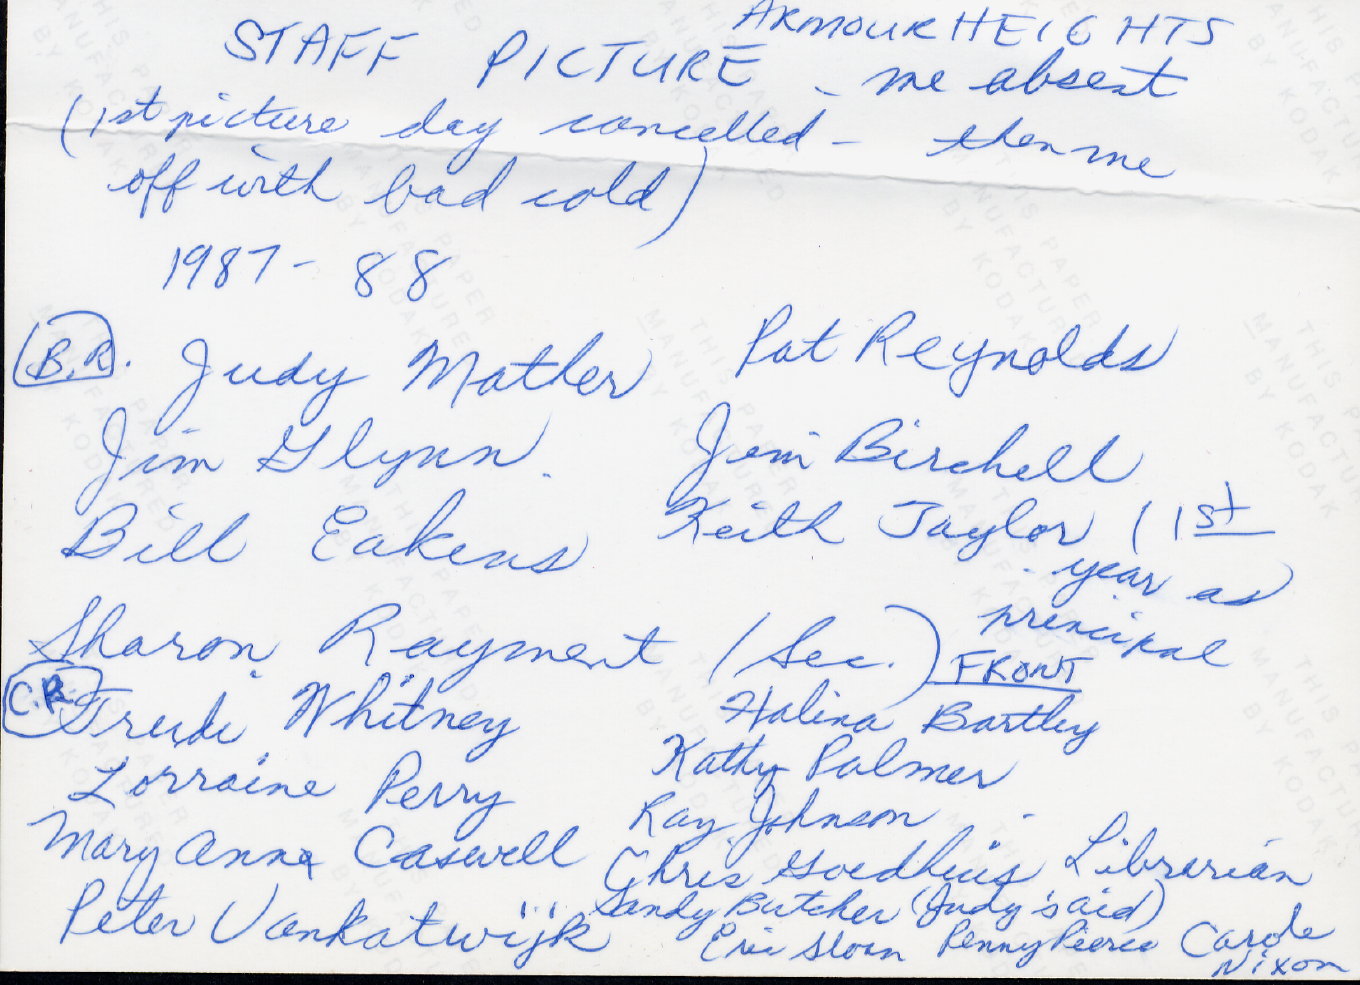 ARMOUR HEIGHTS
STAFF PICTURE - me absent
(1st picture day cancelled - then me
off with bad cold)
1987-88
B.R. Judy Mather Pat Reynolds
Jim Glynn Jim Birchell
Bill Eakens Keith Taylor (1st
year as
principal
Sharon Rayment (Sec.) FRONT
C.R. Trudi Whitney Halina Bartley
Lorraine Perry Kathy Palmer
Mary Anna Caswell Ray Johnson
Chris Goedhuis Librarian
Peter Vankatwijk Sandy Butcher (Judy's aid)
Eric Sloan Penny Pierce Carole
Nixon
THIS PAPER
MANUFACTURED
BY KODAK